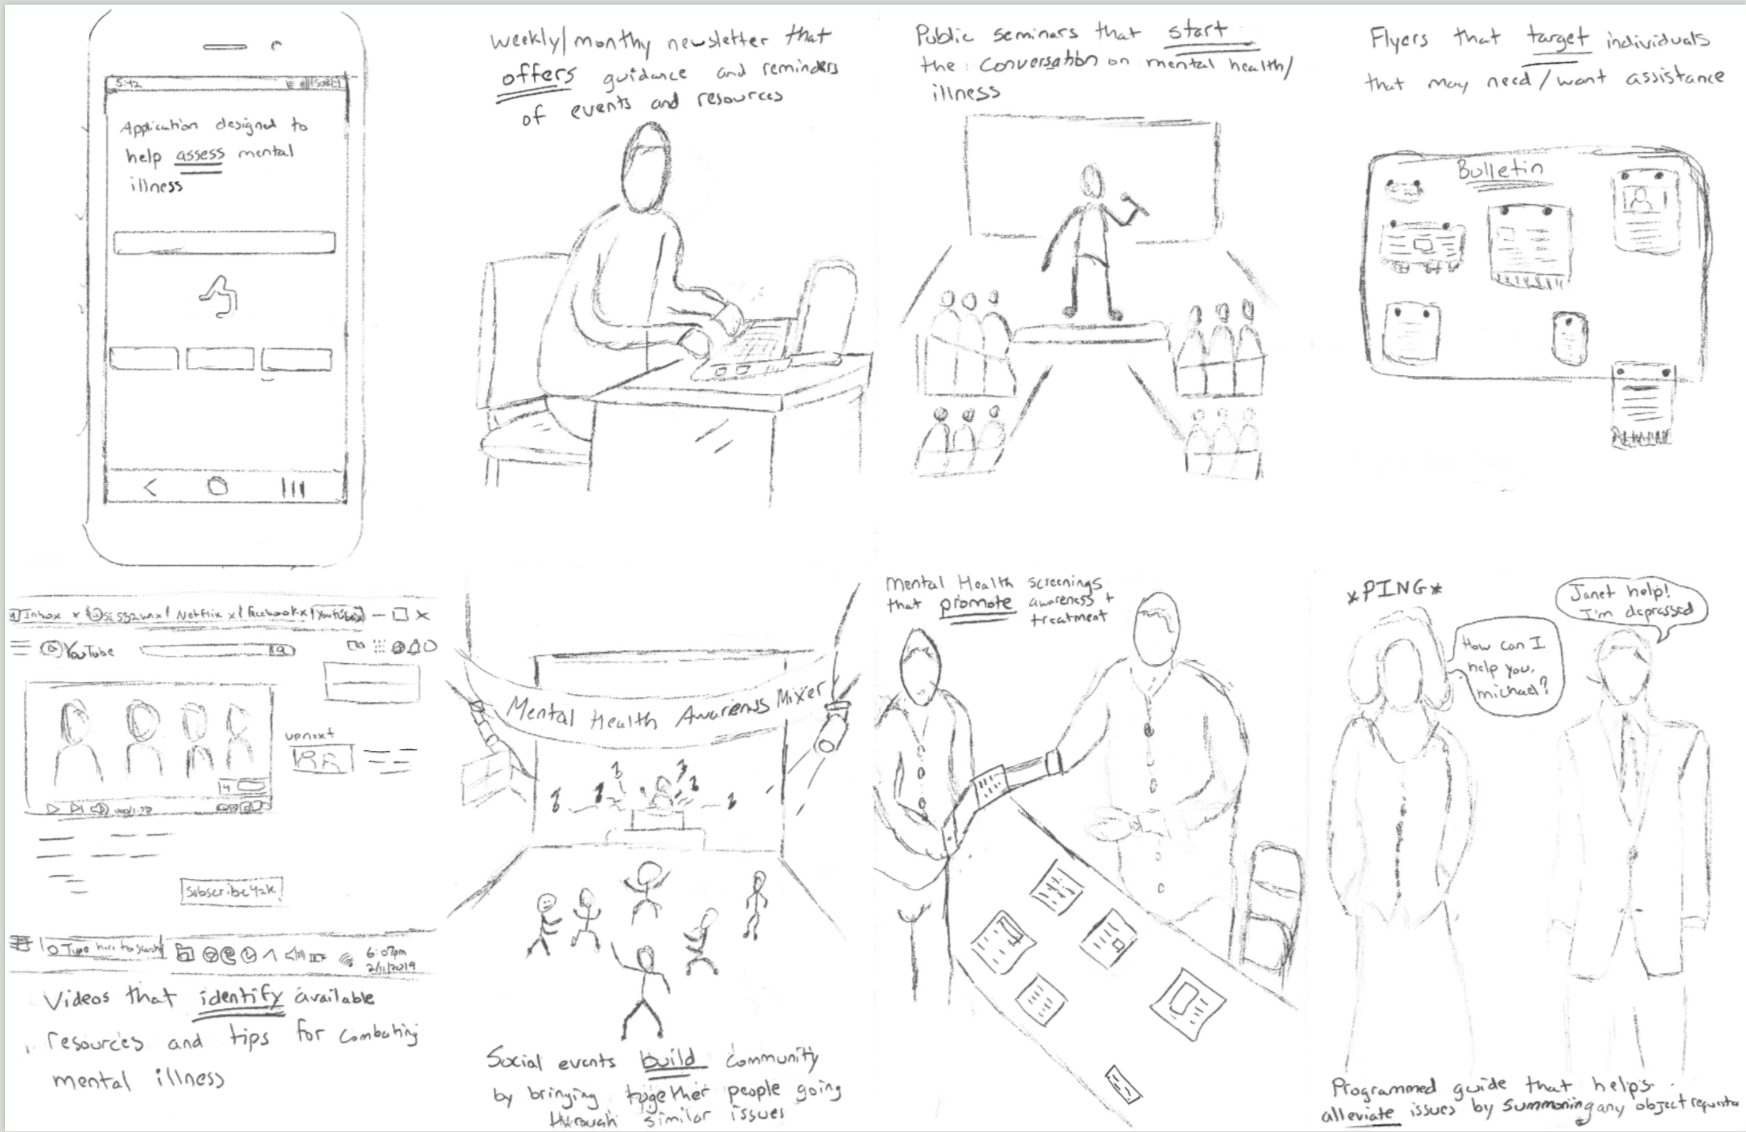 5:42
Application designed to
help assess mental
illness
weekly/monthy newsletter that
offers guidance and reminders
of events and resources
Public seminars that start
the conversation on mental health/
illness
Flyers that target individuals
that may need/want assistance
Bulletin
Inbox x
Netflix x
Facebook x
YouTube
YouTube
upnext
Subscribe 42k
Type here to search
6:07pm
2/11/2019
Videos that identify available
resources and tips for combating
mental illness
Mental Health Awareness Mixer
Social events build community
by bringing together people going
through similar issues
Mental Health screenings
that promote awareness +
treatment
*PING*
How can I
help you,
michael?
Janet help!
I'm depressed
Programmed guide that helps
alleviate issues by summoning any object